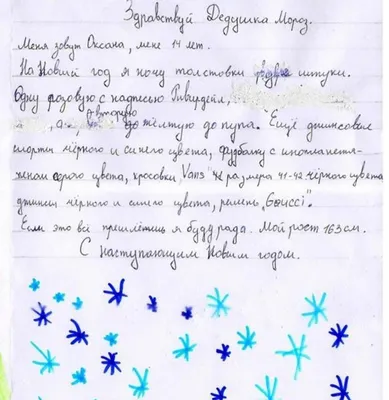 Здравствуй Дедушка Мороз.
Меня зовут Оксана, мне 14 лет.
На Новый год я хочу толстовки две штуки.
Одну розовую с надписью Ривердейл,
а вторую
жёлтую до пупа. Ещё джинсовые
шорты чёрного и синего цвета, футболку с инопланетя-
нином серого цвета, кросовки Vans размера 41-42 чёрного цвета
джинсы чёрного и синего цвета, ремень „Gucci".
Если это всё пришлёшь я буду рада. Мой рост 163 см.
С наступающим Новым годом.